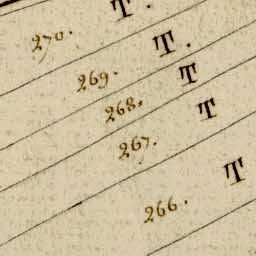 270. T.
269. T.
268. T
267. T
266. T